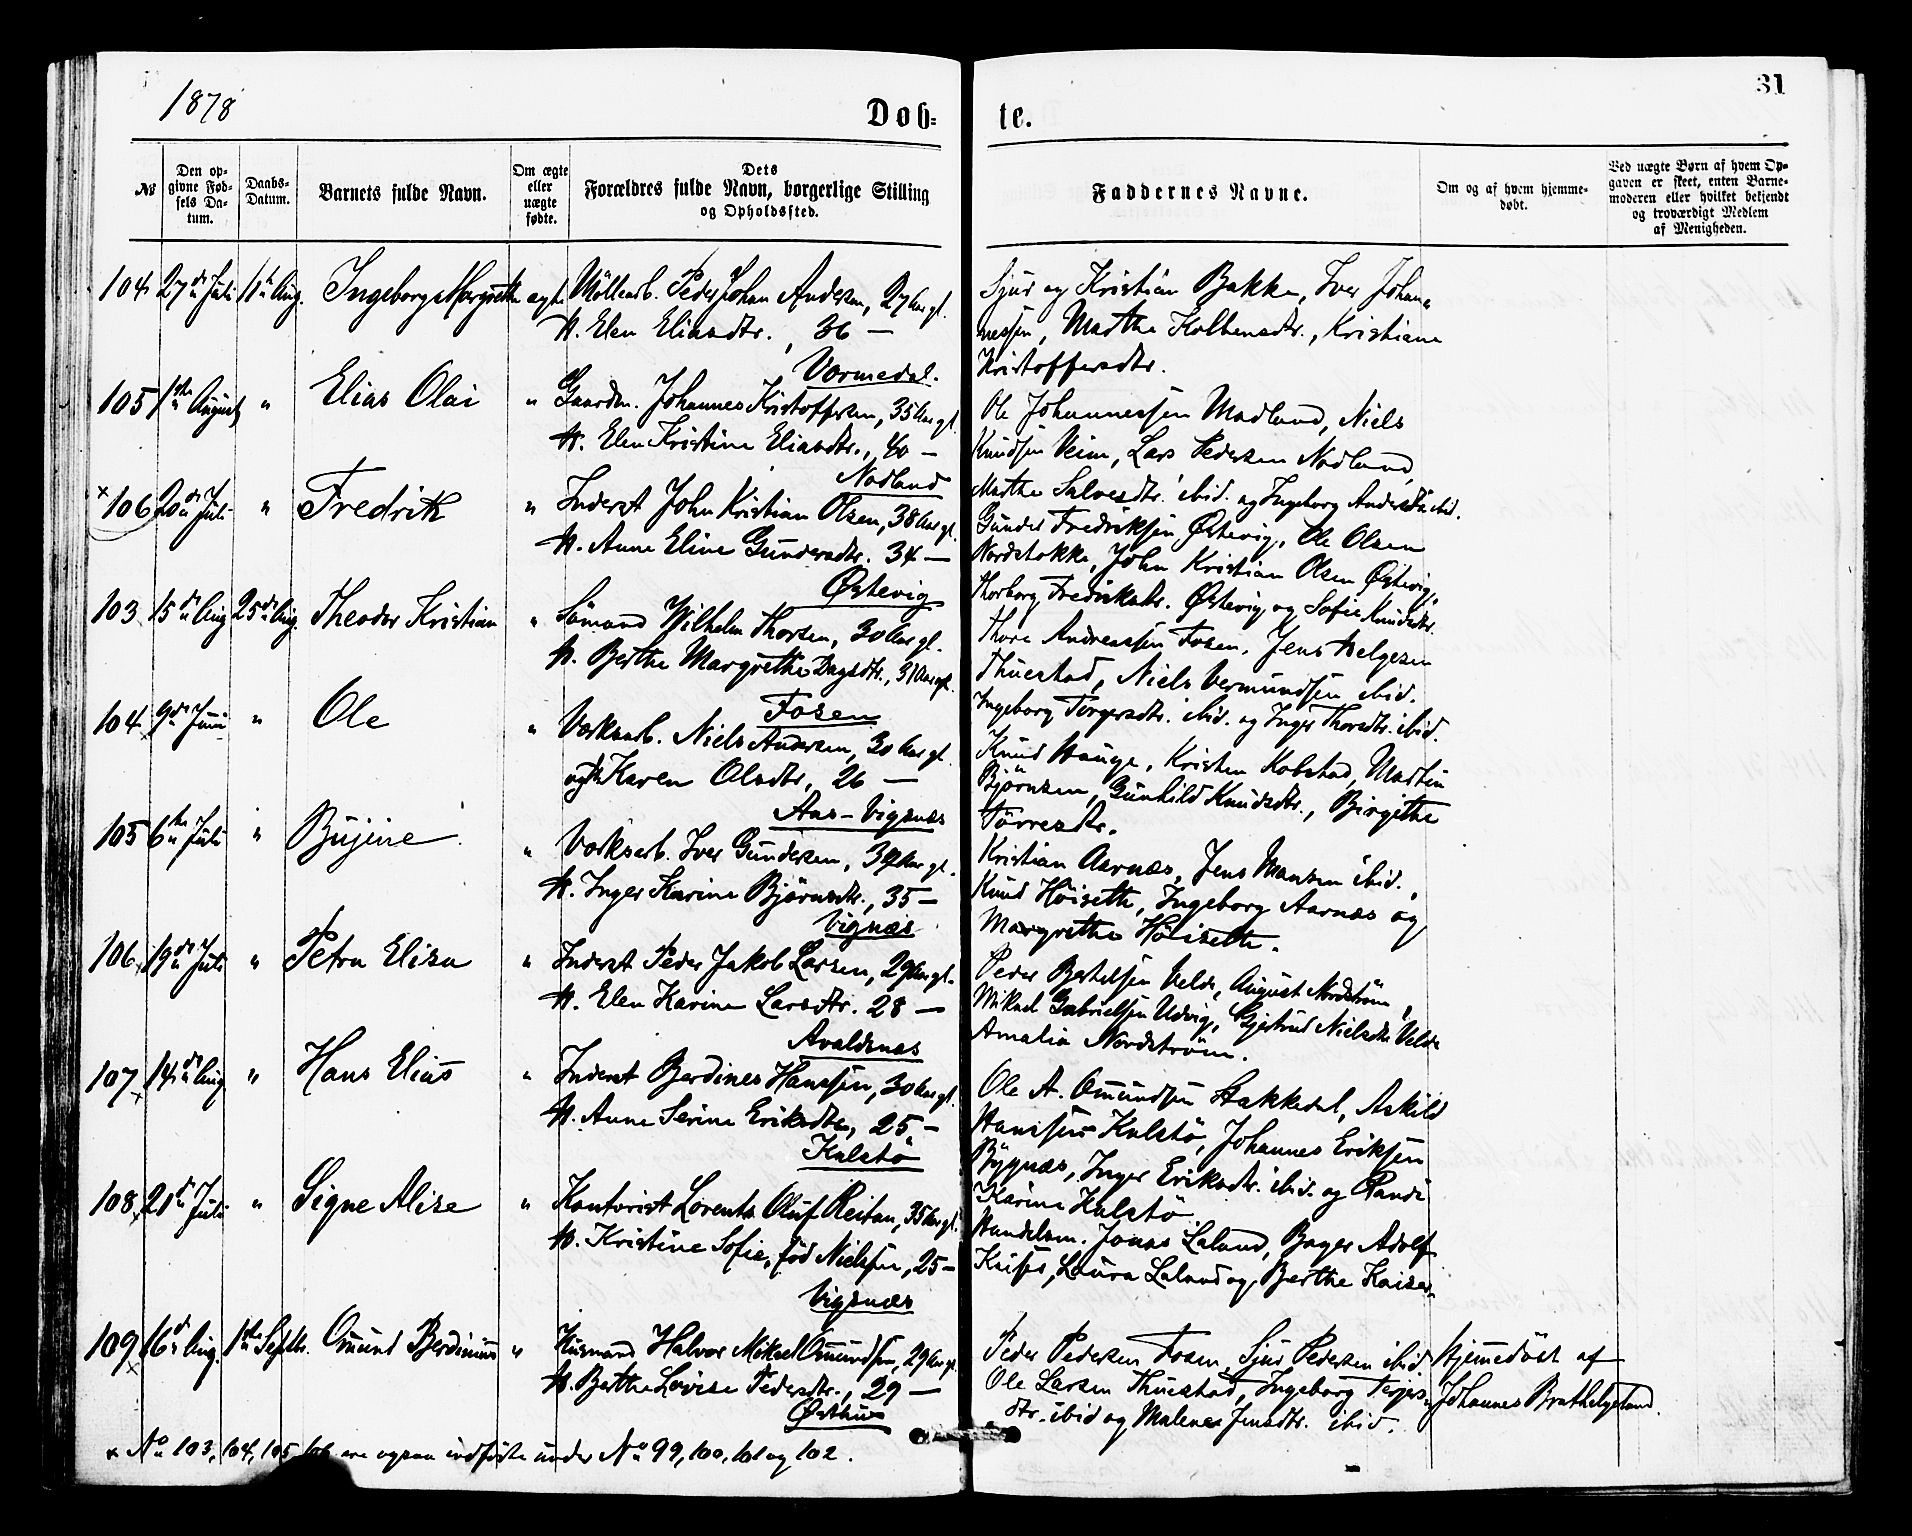 1878
Døb-
te.
31
№
Den opgivne Fødsels Datum.
Daabs-Datum.
Barnets fulde Navn.
Om ægte eller uægte fødte.
Dets Forældres fulde Navn, borgerlige Stilling og Opholdssted.
Faddernes Navne.
Om og af hvem hjemmedøbt.
Ved uægte Børn af hvem Opgaven er skeet, enten Barnemoderen eller hvilket bekjendt og troværdigt Medlem af Menigheden.
104 27de Juli 11te Aug. Ingeborg Margrethe ægte Möllearb. Peder Johan Andersen, 27 Aar gl.
H. Elen Eliasdtr., 36 —
Vormedal.
Sjur og Kristian Bakke, Iver Johan-
nessen, Marthe Kolbensdtr., Kristiane
Kristoffersdtr.
105 1ste August " Elias Olai " Gaardm. Johannes Kristoffersen, 35 Aar gl.
H. Elen Kristine Eliasdtr., 40 —
Nodland
Ole Johannessen Madland, Niels
Knudsen Veim, Lars Pedersen Nodland,
Marthe Salvesdtr. ibid. og Ingeborg Andersdtr. ibid.
× 106 20de Juli " Fredrik " Inderst John Kristian Olsen, 38 Aar gl.
H. Anne Eline Gundersdtr. 34 —
Østevig
Gunder Fredriksen Østevig, Ole Olsen
Nordstokke, John Kristian Olsen Østevig,
Thorborg Fredriksdtr. Østevig og Sofie Knudsdtr.
103 15de Aug 25de Aug. Theodor Kristian " Sömand Wilhelm Thorsen, 30 Aar gl.
H. Berthe Margrethe Dagsdtr., 31 Aar gl.
Fosen
Thore Andreassen Fosen, Jens Helgesen
Thuestad, Niels Vermundsen ibid.
Ingeborg Torgersdtr. ibid. og Inger Thorsdtr. ibid.
104 9de Juni " Ole " Værksarb. Niels Andersen, 30 Aar gl.
og H. Karen Olsdtr, 26 —
Aas – Vigsnæs
Knud Hauge, Kristen Kobstad, Martin
Björnsen, Gunhild Knudsdtr., Birgithe
Törresdtr.
105 6te Juli " Bujine " Værksarb. Iver Gundersen, 39 Aar gl.
H. Inger Karine Björnsdtr., 35 —
Vignæs
Kristian Aarnæs, Jens Hansen ibid.,
Knud Höisette, Ingeborg Aarnæs og
Margrethe Höisette.
106 19de Juli " Petra Elisa " Inderst Peder Jakob Larsen, 29 Aar gl.
H. Elen Karine Larsdtr. 28 —
Avaldsnæs
Peder Bertelsen Velde, August Nordström,
Mikael Gabrielsen Udvig, Gjertrud Nielsdtr. Velde
Amalia Nordström.
107 14de Aug " Hans Elius " Inderst Berdines Hanssen, 30 Aar gl.
H. Anne Serine Eriksdtr, 25 —
Kalstö
Ole A. Omundsen Stakkedal, Askild
Hanssen Kalstö, Johannes Eriksen
Bygnæs, Inger Eriksdtr. ibid. og Randi
Karine Kalstö
108 21de Juli " Signe Alise " Kontorist Lorents Oluf Reitan, 35 Aar gl.
H. Kristine Sofie, föd Nielsen, 25 —
Vigsnæs
Handelsm. Jonas Laland, Bager Adolf
Laura Laland og Berthe Kaiser
109 16de Aug. 1ste Septbr. Omund Berdinius " Husmand Halvor Mikael Omundsen, 29 Aar gl.
H. Berthe Lovise Pedersdtr., 29 —
Østhus
Peder Pedersen Fosen, Sjur Pedersen ibid
Ole Larsen Thuestad, Ingeborg Terjes-
dtr. ibid og Malene Jensdtr. ibid.
Hjemmedöbt af
Johannes Brathelgeland.
× No 103, 104, 105, 106 ere ogsaa indförte under No 99, 100, 101 og 102.